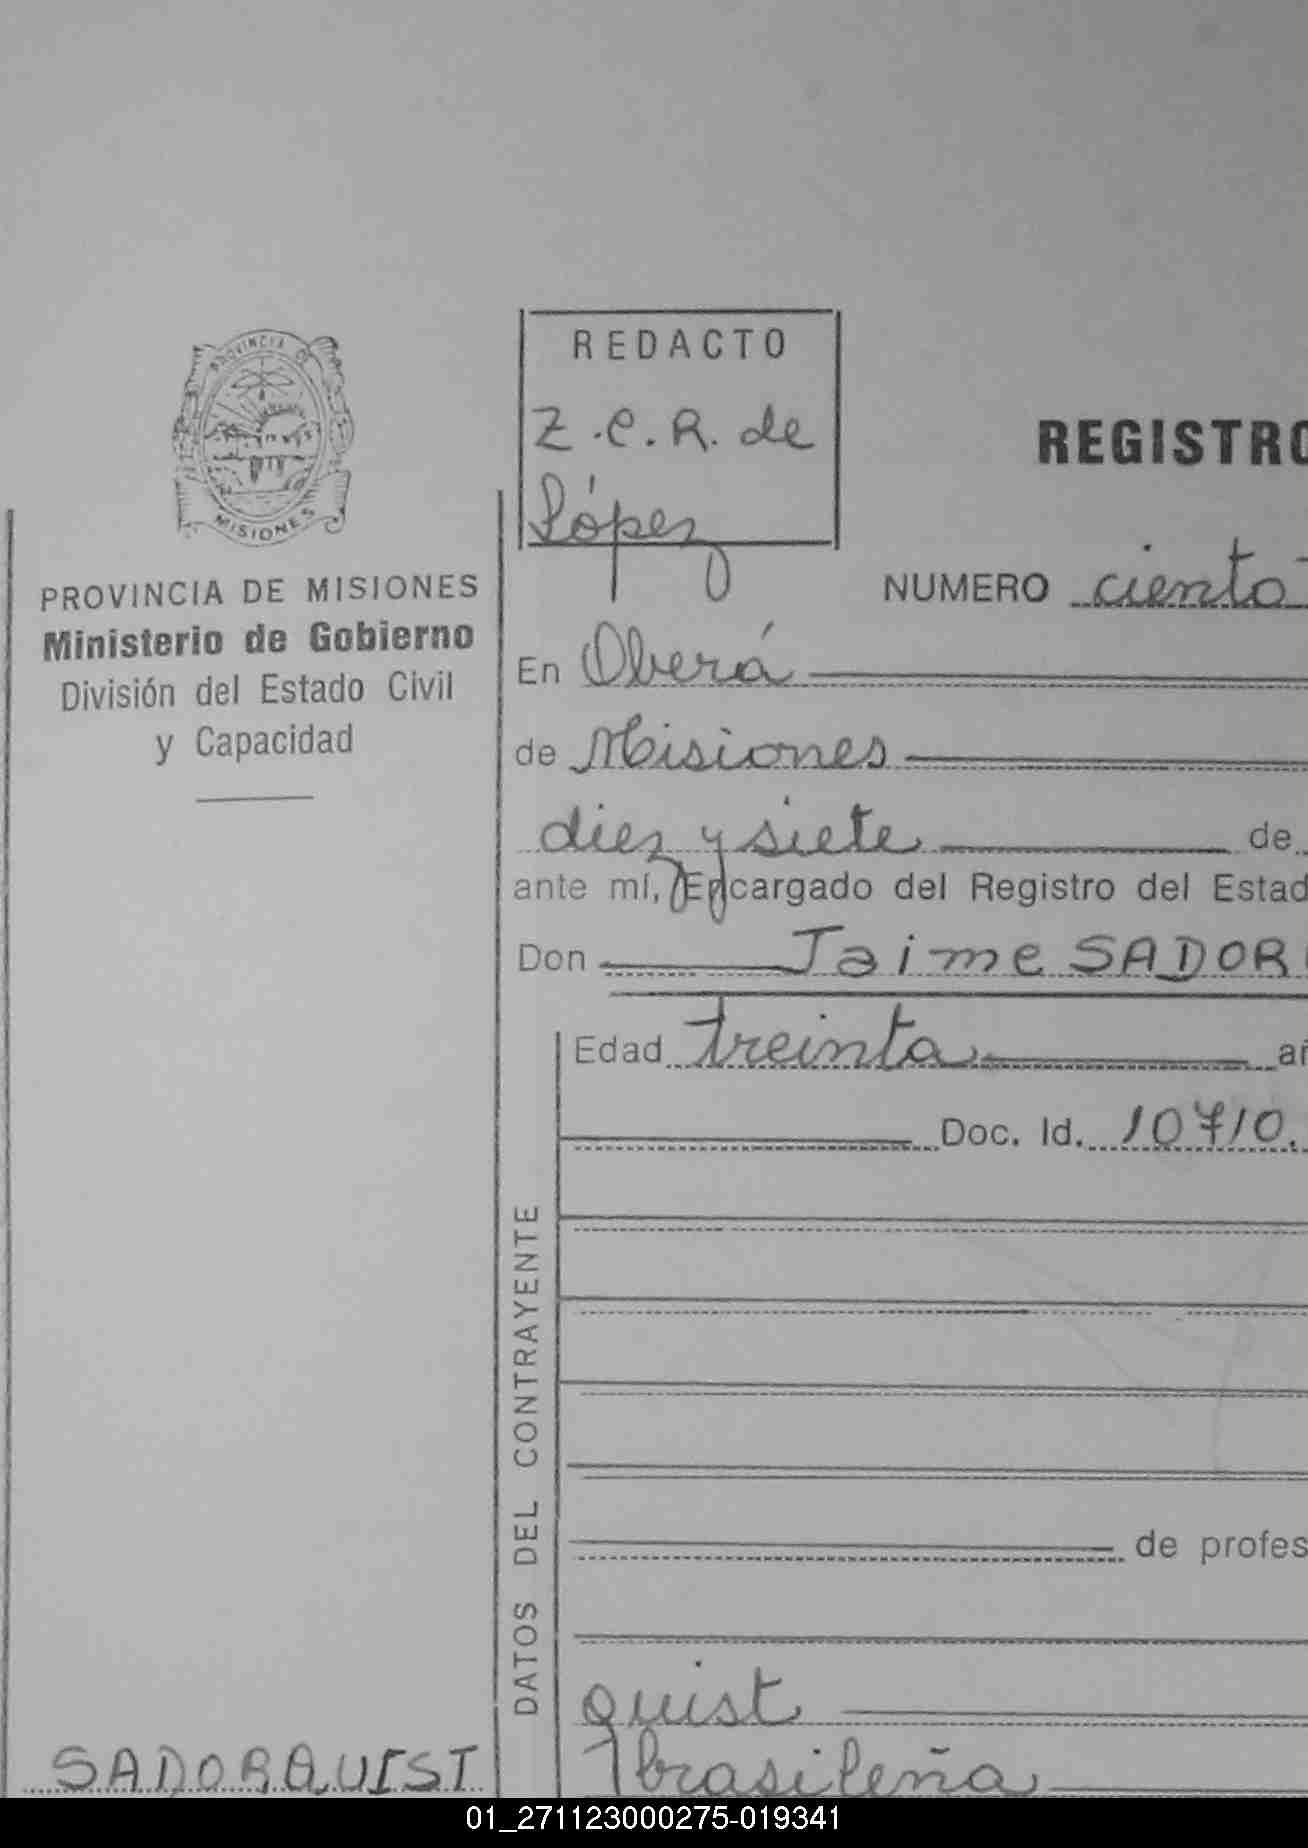 PROVINCIA D
MISIONES
PROVINCIA DE MISIONES
Ministerio de Gobierno
División del Estado Civil
y Capacidad
SADORQUIST
REDACTO
Z.C.R. de
López
REGISTRO
NUMERO ciento
En Oberá
de Misiones
diez y siete de
ante mí, Encargado del Registro del Estad
Don Jaime SADOR
Edad treinta añ
Doc. Id. 10710.
DATOS DEL CONTRAYENTE
de profes
quist
brasileña
01_271123000275-019341